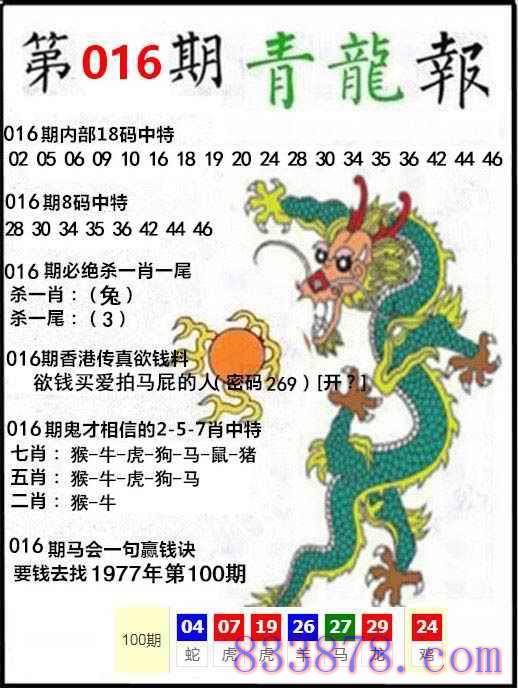 第016期青龍報
016期内部18码中特
02 05 06 09 10 16 18 19 20 24 28 30 34 35 36 42 44 46
016期8码中特
28 30 34 35 36 42 44 46
016期必绝杀一肖一尾
杀一肖：(兔)
杀一尾：(3)
016期香港传真欲钱料
欲钱买爱拍马屁的人(密码269)[开？]
016期鬼才相信的2-5-7肖中特
七肖：猴-牛-虎-狗-马-鼠-猪
五肖：猴-牛-虎-狗-马
二肖：猴-牛
016期马会一句赢钱诀
要钱去找1977年第100期
100期 04 07 19 26 27 29 24
蛇 虎 虎 羊 马 龙 鸡
833878.com